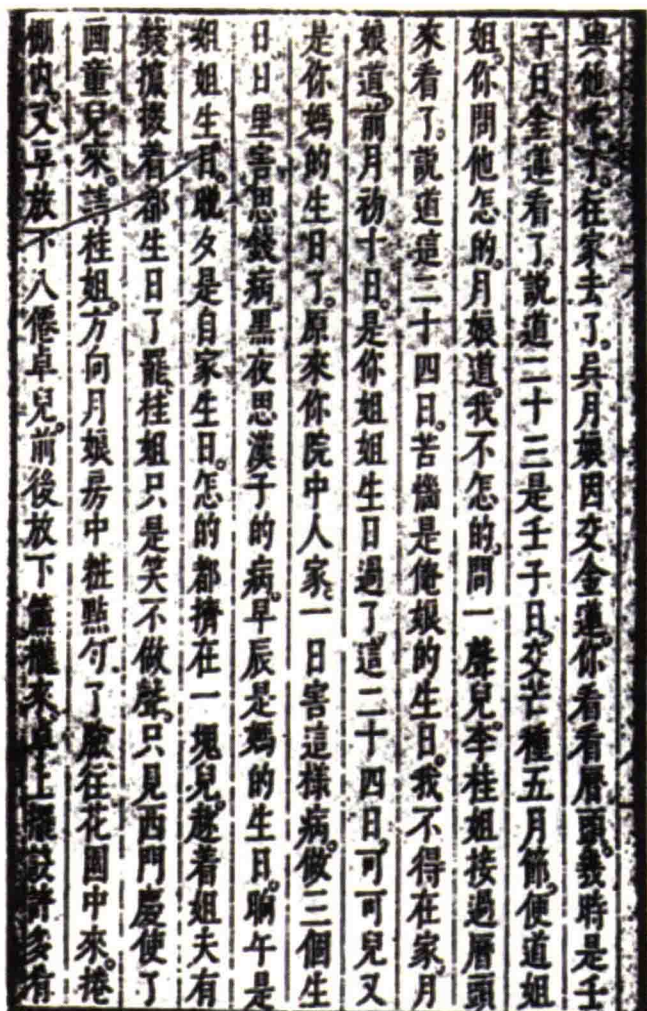 與他吃了。在家去了。吳月娘因交金蓮。你看看曆頭。幾時是壬
子日。金蓮看了。說道二十三是壬子日。交芒種五月節。便道姐
姐。你問他怎的。月娘道。我不怎的。問一聲兒。李桂姐接過曆頭
來看了。說道這二十四日。苦惱是俺娘的生日。我不得在家。月
娘道。前月初十日。是你姐姐生日過了。這二十四日。可可兒又
是你媽的生日了。原來你院中人家。一日害這樣病。做三個生
日。日里害思錢病。黑夜思漢子的病。早辰是媽的生日。晌午是
姐姐生日。晚夕是自家生日。怎的都擠在一塊兒。趂着姐夫有
錢攛掇着都生日了罷。桂姐只是笑不做聲。只見西門慶使了
画童兒來。請桂姐。方向月娘房中粧點勻了臉。往花園中來。捲
棚內。又早放下八僊卓兒。前後放下簾櫳來。卓上擺設許多肴